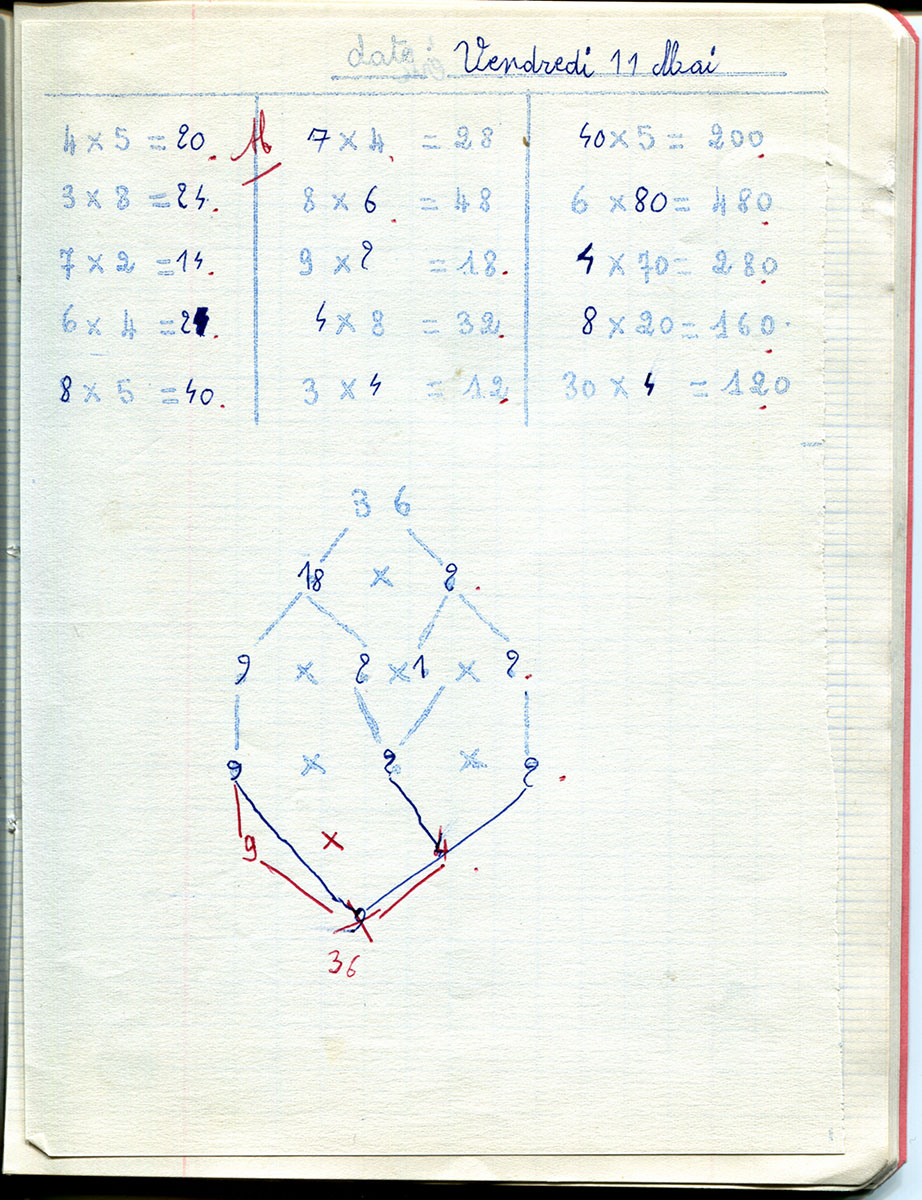 date : Vendredi 11 Mai
4 × 5 = 20 7 × 4 = 28 40 × 5 = 200
3 × 8 = 24 8 × 6 = 48 6 × 80 = 480
7 × 2 = 14 9 × 2 = 18 4 × 70 = 280
6 × 4 = 24 4 × 8 = 32 8 × 20 = 160
8 × 5 = 40 3 × 4 = 12 30 × 4 = 120
36
18 × 2
9 × 2 × 1 × 2
9 × 2 × 2
9 × 4
36